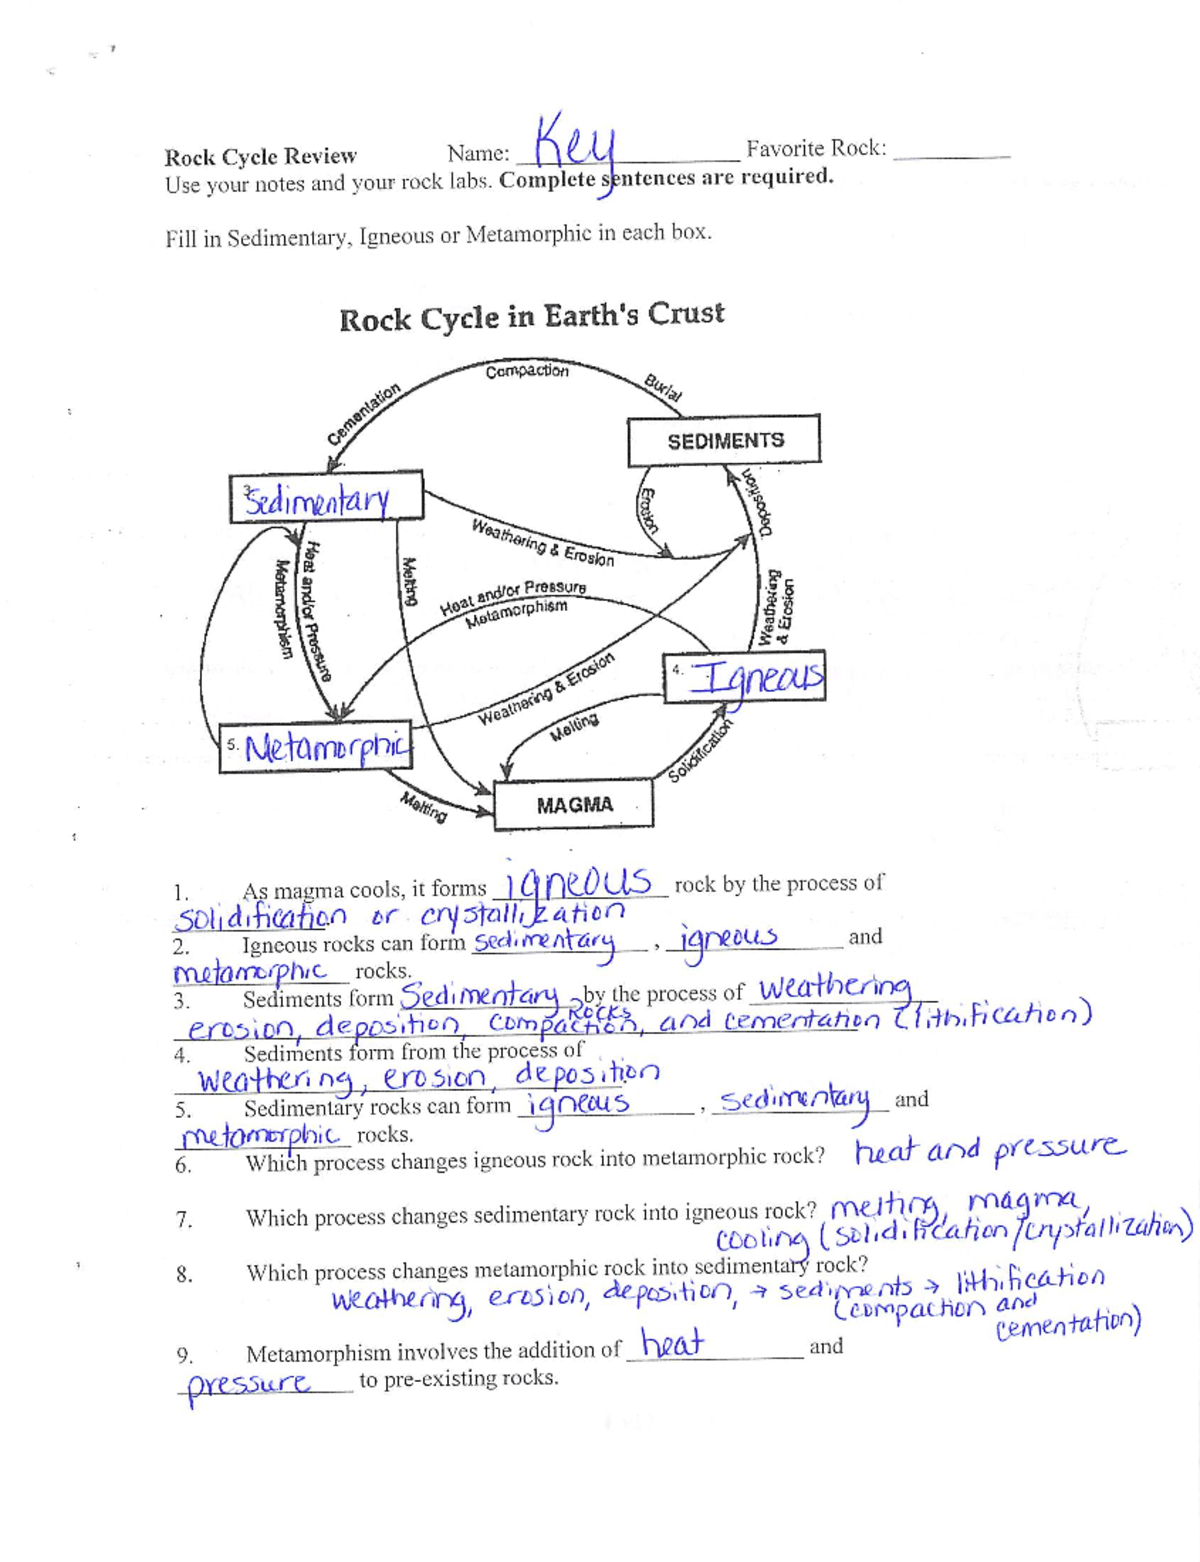 Rock Cycle Review Name: Key Favorite Rock:
Use your notes and your rock labs. Complete sentences are required.
Fill in Sedimentary, Igneous or Metamorphic in each box.
Rock Cycle in Earth's Crust
Compaction
Burial
Cementation
SEDIMENTS
3. Sedimentary
Erosion
Deposition
Weathering & Erosion
Heat and/or Pressure
Metamorphism
Melting
Heat and/or Pressure
Metamorphism
Weathering
& Erosion
4. Igneous
Weathering & Erosion
Melting
Solidification
5. Metamorphic
MAGMA
Melting
1. As magma cools, it forms igneous rock by the process of
solidification or crystallization
2. Igneous rocks can form sedimentary, igneous and
metamorphic rocks.
3. Sediments form Sedimentary by the process of weathering
Rocks
erosion, deposition, compaction, and cementation (lithification)
4. Sediments form from the process of
weathering, erosion, deposition
5. Sedimentary rocks can form igneous, sedimentary and
metamorphic rocks.
6. Which process changes igneous rock into metamorphic rock? heat and pressure
7. Which process changes sedimentary rock into igneous rock? melting, magma,
cooling (solidification/crystallization)
8. Which process changes metamorphic rock into sedimentary rock?
weathering, erosion, deposition, → sediments → lithification
(compaction and
cementation)
9. Metamorphism involves the addition of heat and
pressure to pre-existing rocks.